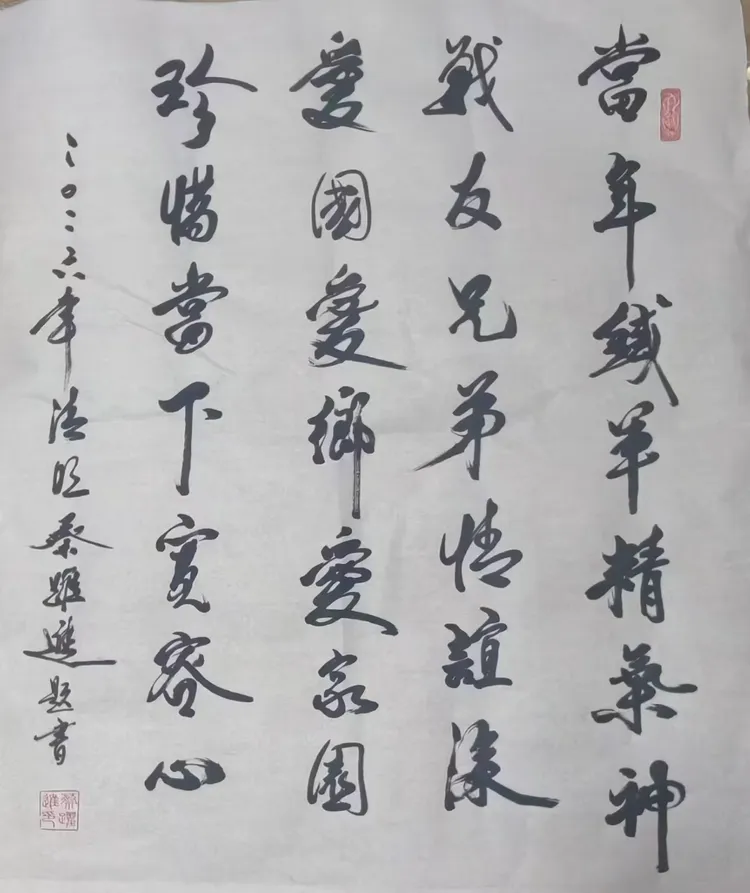 當年鐵軍精氣神
戰友兄弟情誼深
愛國愛鄉愛家園
珍惜當下寬容心
二〇二六年清明秦躍進題書